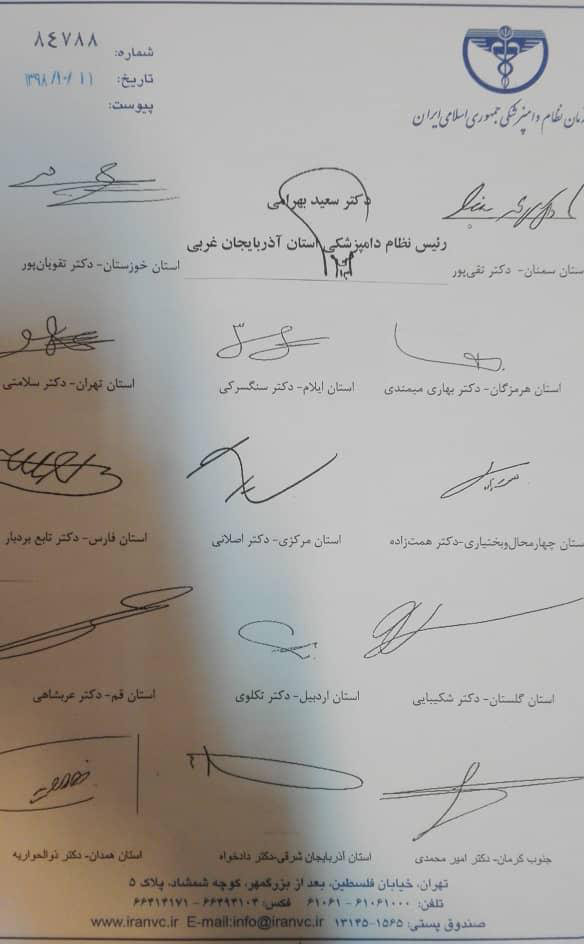 شماره: ۸۴۷۸۸
تاریخ: ۱۳۹۸/۱۰/۱۱
پیوست:
زمان نظام دامپزشکی جمهوری اسلامی ایران
دکتر سعید بهرامی
رئیس نظام دامپزشکی استان آذربایجان غربی
استان سمنان- دکتر تقی‌پور
استان خوزستان- دکتر تقویان‌پور
استان هرمزگان- دکتر بهاری میمندی
استان ایلام- دکتر سنگسرکی
استان تهران- دکتر سلامتی
ستان چهارمحال‌وبختیاری-دکتر همت‌زاده
استان مرکزی- دکتر اصلانی
استان فارس- دکتر تابع بردبار
استان گلستان- دکتر شکیبایی
استان اردبیل- دکتر تکلوی
استان قم- دکتر عربشاهی
جنوب کرمان- دکتر امیر محمدی
استان آذربایجان شرقی-دکتر دادخواه
استان همدان- دکتر ذوالحواریه
تهران، خیابان فلسطین، بعد از بزرگمهر، کوچه شمشاد، پلاک ۵
تلفن: ۶۱۰۶۱۰۰۰ - ۶۱۰۶۱ فکس: ۶۶۴۹۴۱۰۴ - ۶۶۴۱۴۱۷۱
صندوق پستی: ۱۵۶۵-۱۳۱۴۵ www.iranvc.ir E-mail:info@iranvc.ir